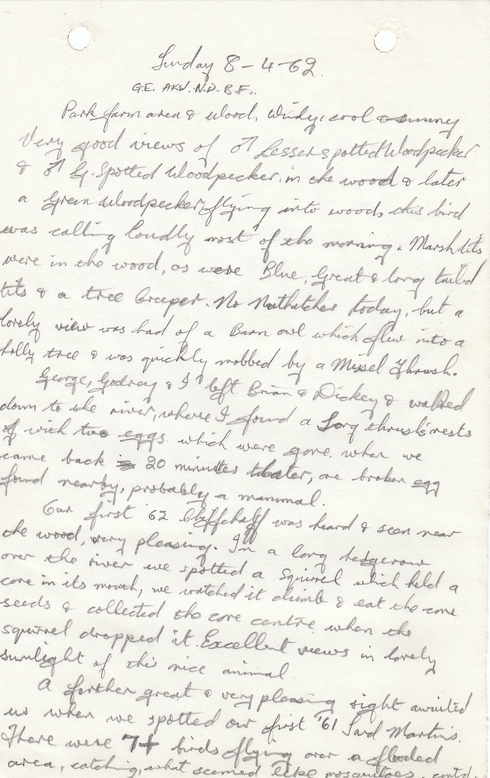 Sunday 8-4-62.
G.E. AKW. N.D. B.F..
Park farm area & wood, Windy, cool & sunny
Very good views of ♂ Lesser spotted Woodpecker
& ♂ G. Spotted Woodpecker, in the wood & later
a Green Woodpecker flying into woods, this bird
was calling loudly most of the morning. Marsh tits
were in the wood, as were Blue, Great & long tailed
tits & a tree creeper. No Nuthatches today, but a
lovely view was had of a Barn owl which flew into a
holly tree & was quickly mobbed by a Missel Thrush.
George, Godfray & I left Brian & Dickey & walked
down to the river, where I found a Song thrush's nests
with two eggs which were gone when we
came back 20 minutes later, one broken egg
found nearby, probably a mammal.
Our first '62 Chiffchaff was heard & seen near
the wood, very pleasing. In a long hedgerow
over the river we spotted a Squirrel which held a
cone in its mouth, we watched it climb & eat the cone
seeds & collected the core centre when the
squirrel dropped it. Excellent views in lovely
sunlight of this nice animal
A further great & very pleasing sight awaited
us when we spotted our first '61 Sand Martins.
There were 7+ birds flying over a flooded
area, catching, what seemed like mosquitoes, contd.